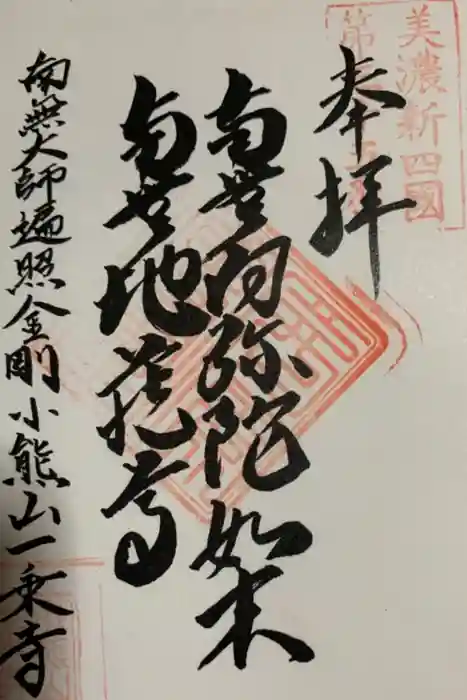 美濃新四國
奉拝
南無阿弥陀如来
南無地蔵尊
南無大師遍照金剛小熊山一乗寺